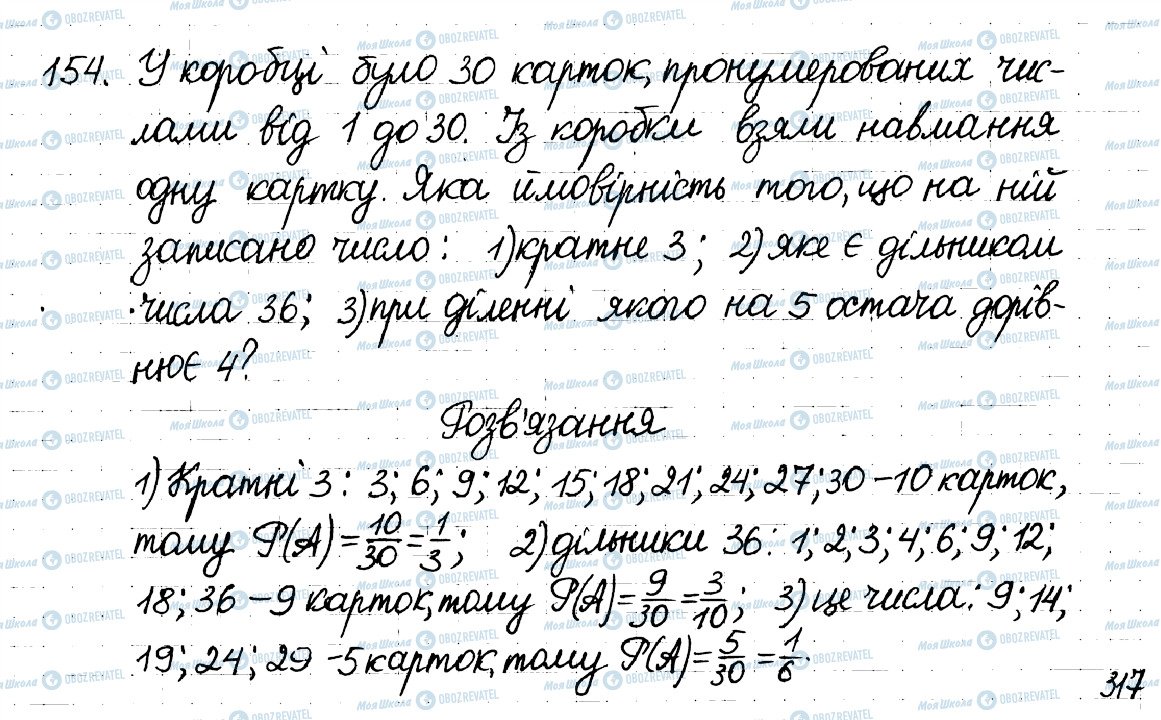 154. У коробці було 30 карток, пронумерованих чис-
лами від 1 до 30. Із коробки взяли навмання
одну картку. Яка ймовірність того, що на ній
записано число: 1) кратне 3; 2) яке є дільником
числа 36; 3) при діленні якого на 5 остача дорів-
нює 4?
Розв'язання
1) Кратні 3: 3; 6; 9; 12; 15; 18; 21; 24; 27; 30 – 10 карток,
тому P(A) = 10/30 = 1/3; 2) дільники 36: 1; 2; 3; 4; 6; 9; 12;
18; 36 – 9 карток, тому P(A) = 9/30 = 3/10; 3) це числа: 9; 14;
19; 24; 29 – 5 карток, тому P(A) = 5/30 = 1/6.
317
Моя Школа OBOZREVATEL